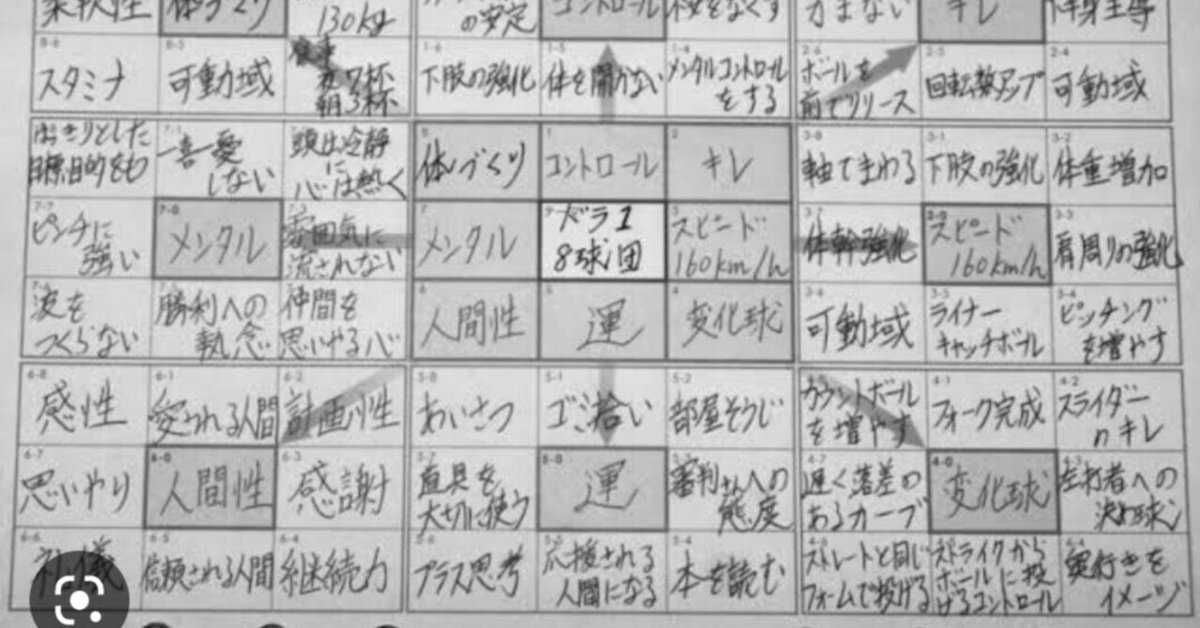 柔軟性
体づくり
130kg
の安定
コントロール
をなくす
力まない
キレ
8-6
スタミナ
8-5
可動域
食事
夜7杯
朝3杯
1-6
下肢の強化
1-5
体を開かない
1-4
メンタルコントロール
をする
2-6
ボールを
前でリリース
2-5
回転数アップ
2-4
可動域
はっきりとした
目標目的をもつ
7-1
一喜一憂
しない
頭は冷静
に
心は熱く
8
体づくり
1
コントロール
2
キレ
3-8
軸でまわる
3-1
下肢の強化
3-2
体重増加
7-7
ピンチに
強い
7-0
メンタル
雰囲気に
流されない
7
メンタル
ドラ1
8球団
3
スピード
160km/h
3-7
体幹強化
3-0
スピード
160km/h
3-3
肩周りの強化
波を
つくらない
勝利への
執念
仲間を
思いやる心
6
人間性
5
運
4
変化球
3-6
可動域
3-5
ライナー
キャッチボール
3-4
ピッチング
を増やす
6-8
感性
6-1
愛される人間
6-2
計画性
5-8
あいさつ
5-1
ゴミ拾い
5-2
部屋そうじ
カウントボール
を増やす
4-1
フォーク完成
4-2
スライダー
のキレ
6-7
思いやり
6-0
人間性
6-3
感謝
5-7
道具を
大切に使う
5-0
運
審判さんへの
態度
4-7
遅く落差の
あるカーブ
4-0
変化球
4-3
左打者への
決め球
6-6
礼儀
6-5
信頼される人間
6-4
継続力
5-6
プラス思考
5-5
応援される
人間になる
5-4
本を読む
4-6
ストレートと同じ
フォームで投げる
ストライクから
ボールに投
げるコントロール
奥行きを
イメージ